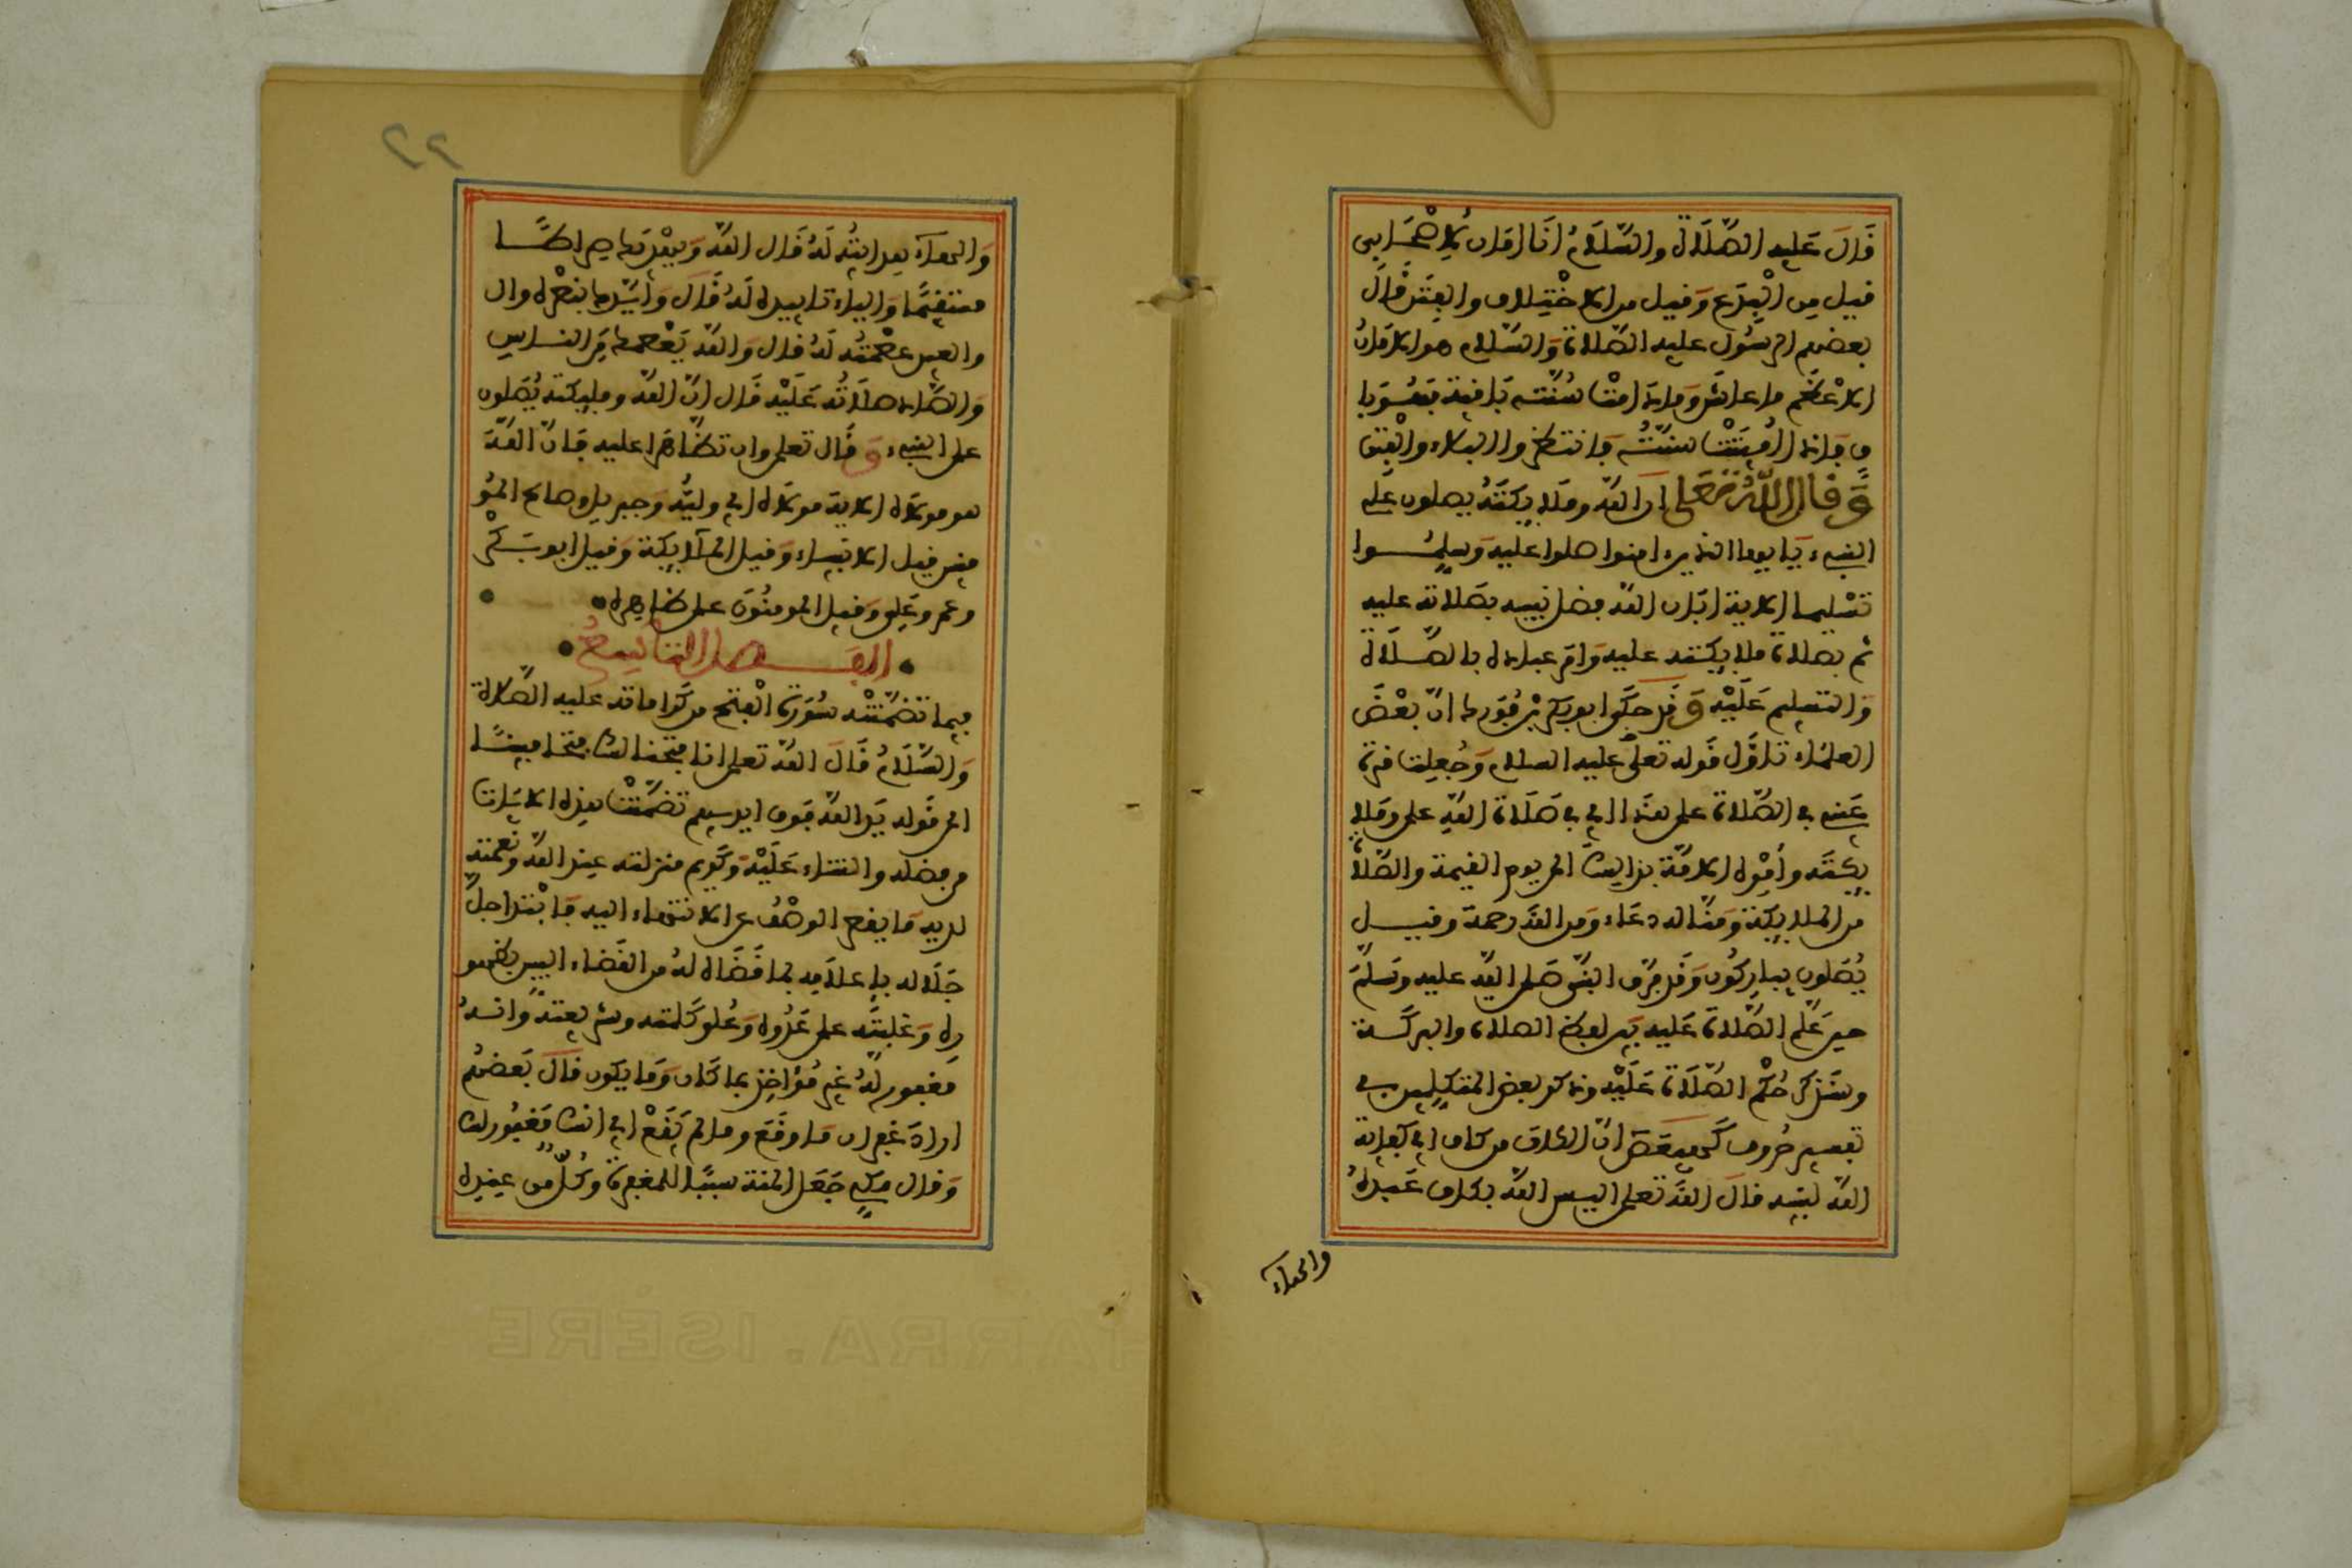 قال عليه الصلاة والسلام انا امان لاصحابي
قيل من البدع وقيل من الاختلاف والفتن قال
بعضهم الرسول عليه الصلاة والسلام هو الامان
الاعظم ما عاش وما دامت سنته باقية فهو با
ق فاذا اميتت سنته فانتظروا البلاء والفتن
وقال الله تعلى ان الله وملايكته يصلون على
النبيء يايها الذين امنوا صلوا عليه وسلموا
تسليما الاية ابان الله فضل نبيه بصلاته عليه
ثم بصلاة ملايكته عليه وامر عباده بالصلاة
والتسليم عليه وقد حكى ابو بكر بن فورك ان بعض
العلماء تاول قوله تعلى عليه السلام وجعلت قرة
عيني في الصلاة على هذا اي في صلاة الله على وملا
يكته وامره الامة بذلك الى يوم القيمة والصلاة
من الملايكة ومنا له دعاء ومن الله رحمة وقيل
يصلون يباركون وقد فرق النبي صلى الله عليه وسلم
حين علم الصلاة عليه بين لفظ الصلاة والبركة
وسنذكر حكم الصلاة عليه وذكر بعض المتكلمين في
تفسير حروف كهيعص ان الكاف من كاف اي كفاية
الله لنبيه قال الله تعلى اليس الله بكاف عبده
والهاء
٢٢
والهاء هدايته له قال الله ويهديك صراطا
مستقيما والياء تاييده له قال وايدك بنصره وال
والعين عصمته له قال والله يعصمك من الناس
والصاد صلاته عليه قال ان الله وملايكته يصلون
على النبيء وقال تعلى وان تظاهرا عليه فان الله
هو مولاه الاية مولاه اي وليه وجبريل وصالح المو
منين قيل الانبياء وقيل الملايكة وقيل ابو بكر
وعمر وعلي وقيل المومنون على ظاهره
الفصل التاسع
فيما تضمنته سورة الفتح من كراماته عليه الصلاة
والسلام قال الله تعلى انا فتحنا لك فتحا مبينا
الى قوله يد الله فوق ايديهم تضمنت هذه الايات
من فضله والثناء عليه وكريم منزلته عند الله ونعمته
لديه ما يقصر الوصف عن الانتهاء اليه فابتدا جل
جلاله باعلامه بما قضاه له من القضاء البين بظهو
ره وغلبته على عدوه وعلو كلمته وشريعته وانه
مغفور له غير مؤاخذ بما كان وما يكون قال بعضهم
اراد غفران ما وقع وما لم يقع اي انك مغفور لك
وقال مكي جعل المنة سببا للمغفرة وكل من عنده